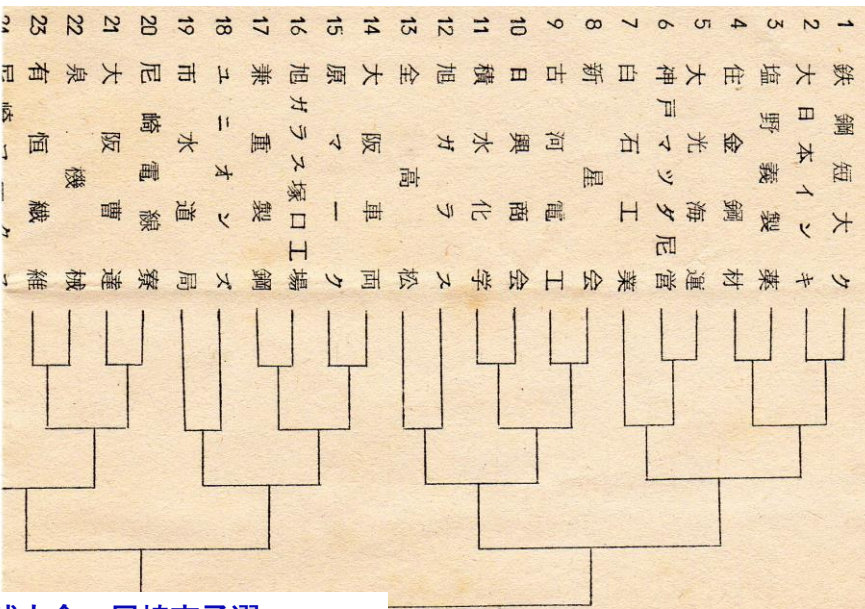 1 鉄鋼短大ク
2 大日本インキ
3 塩野義製薬
4 住金鋼材
5 大光海運
6 神戸マツダ尼営
7 白石工業
8 新星会
9 古河電工
10 日興商会
11 積水化学
12 旭ガラス
13 全高松
14 大阪車両
15 原マーク
16 旭ガラス塚口工場
17 兼重製鋼
18 ユニオンズ
19 市水道局
20 尼崎電線寮
21 大阪曹達
22 泉機械
23 有恒繊維
24